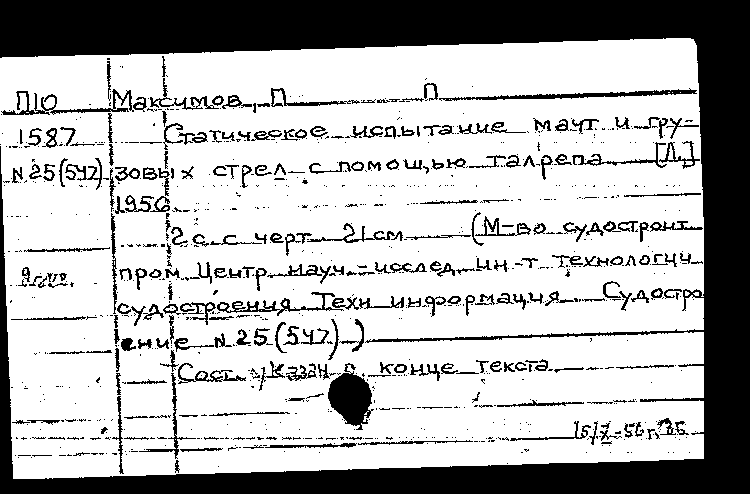 П10 Максимов, П П
1587 Статическое испытание мачт и гру-
N 25(547) зовых стрел с помощью талрепа [Л.]
1956
2 с. с черт. 21 см (М-во судостроит
пром. Центр. науч.-исслед. ин-т технологии
судостроения. Техн информация. Судостро
ение N 25(547))
Сост. указан в конце текста